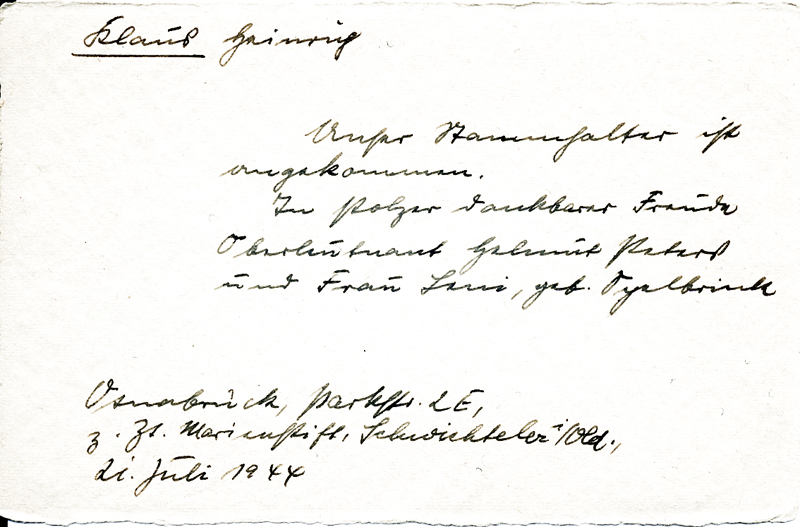 Klaus Heinrich
Unser Stammhalter ist
angekommen.
In stolzer dankbarer Freude
Oberleutnant Helmut Peters
und Frau Leni, geb.
Osnabrück, Parkstr. 2E,
z. Zt. Marienstift, Schwichteler i/Old.,
21. Juli 1944